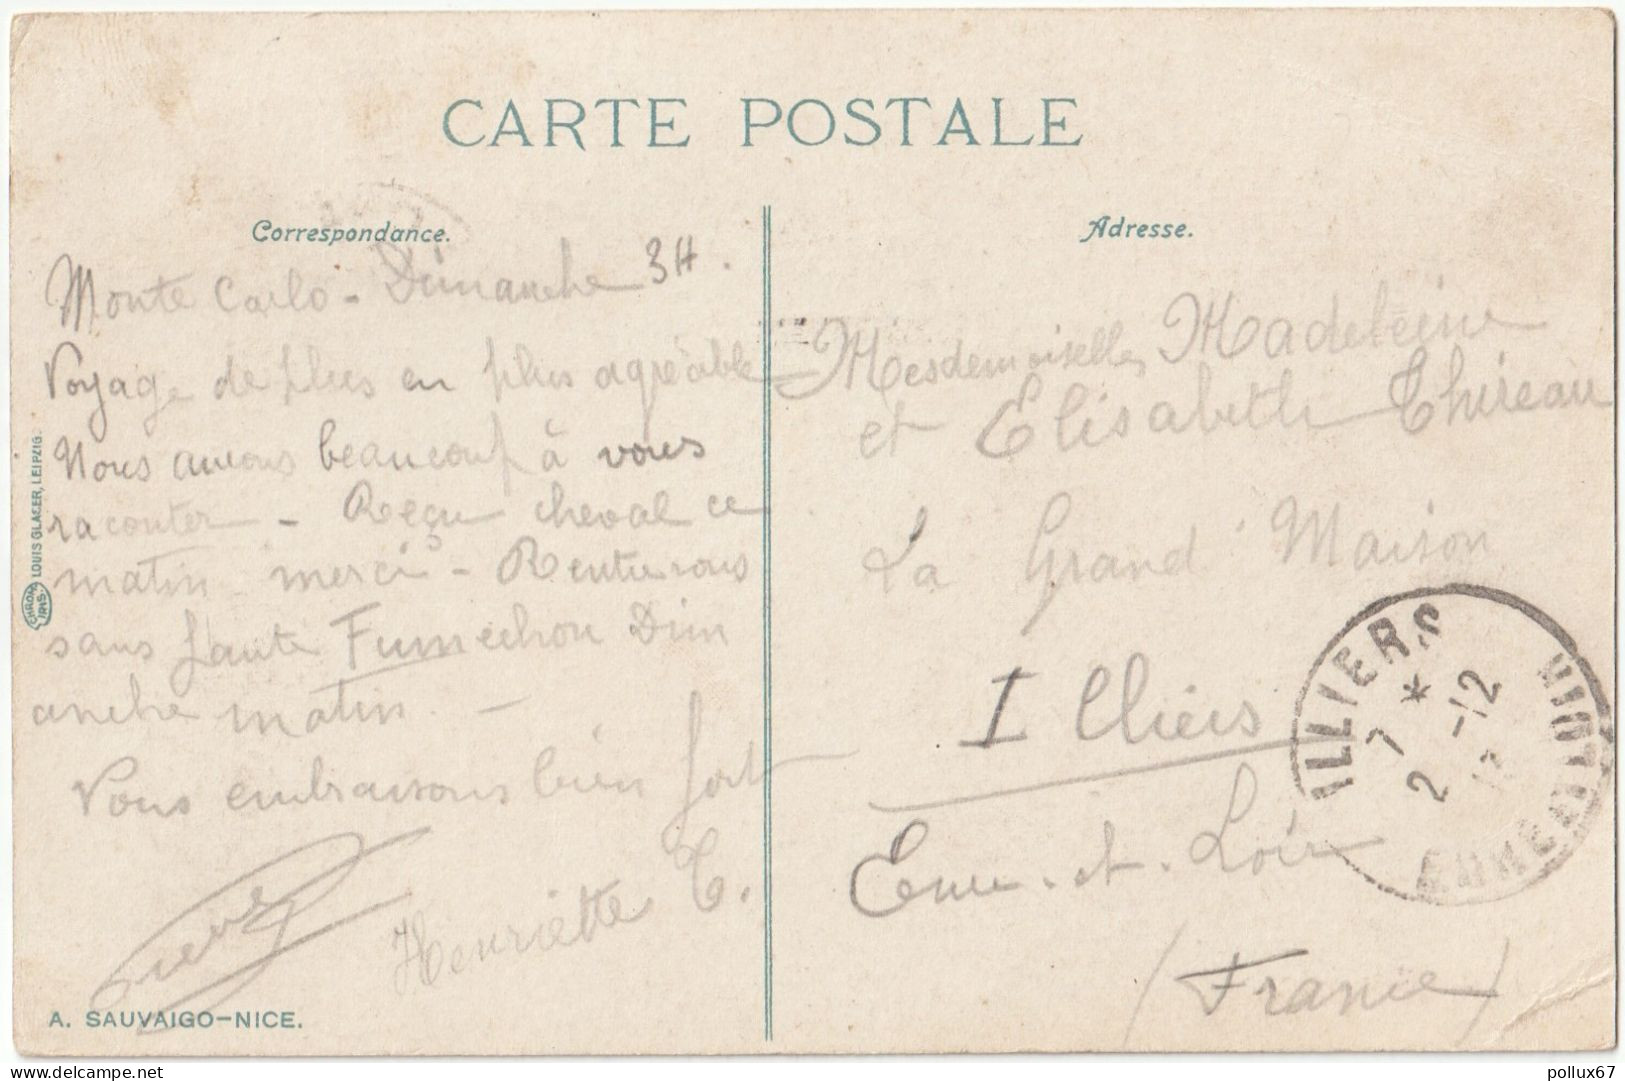 CARTE POSTALE
Correspondance.
Monte Carlo - Dimanche 3H.
Voyage de plus en plus agréable
Nous avons beaucoup à vous
raconter - Reçu cheval ce
matin merci - Rentrerons
sans faute Fumechon Dim
anche matin. -
Vous embrassons bien fort
Henriette T.
A. SAUVAIGO-NICE.
CHROM IRIS. LOUIS GLASER, LEIPZIG.
Adresse.
Mesdemoiselles Madeleine
et Elisabeth Thireau
La Grand' Maison
Illiers
Eure-et-Loir
(France)
ILLIERS
7 *
2 -12
pollux67